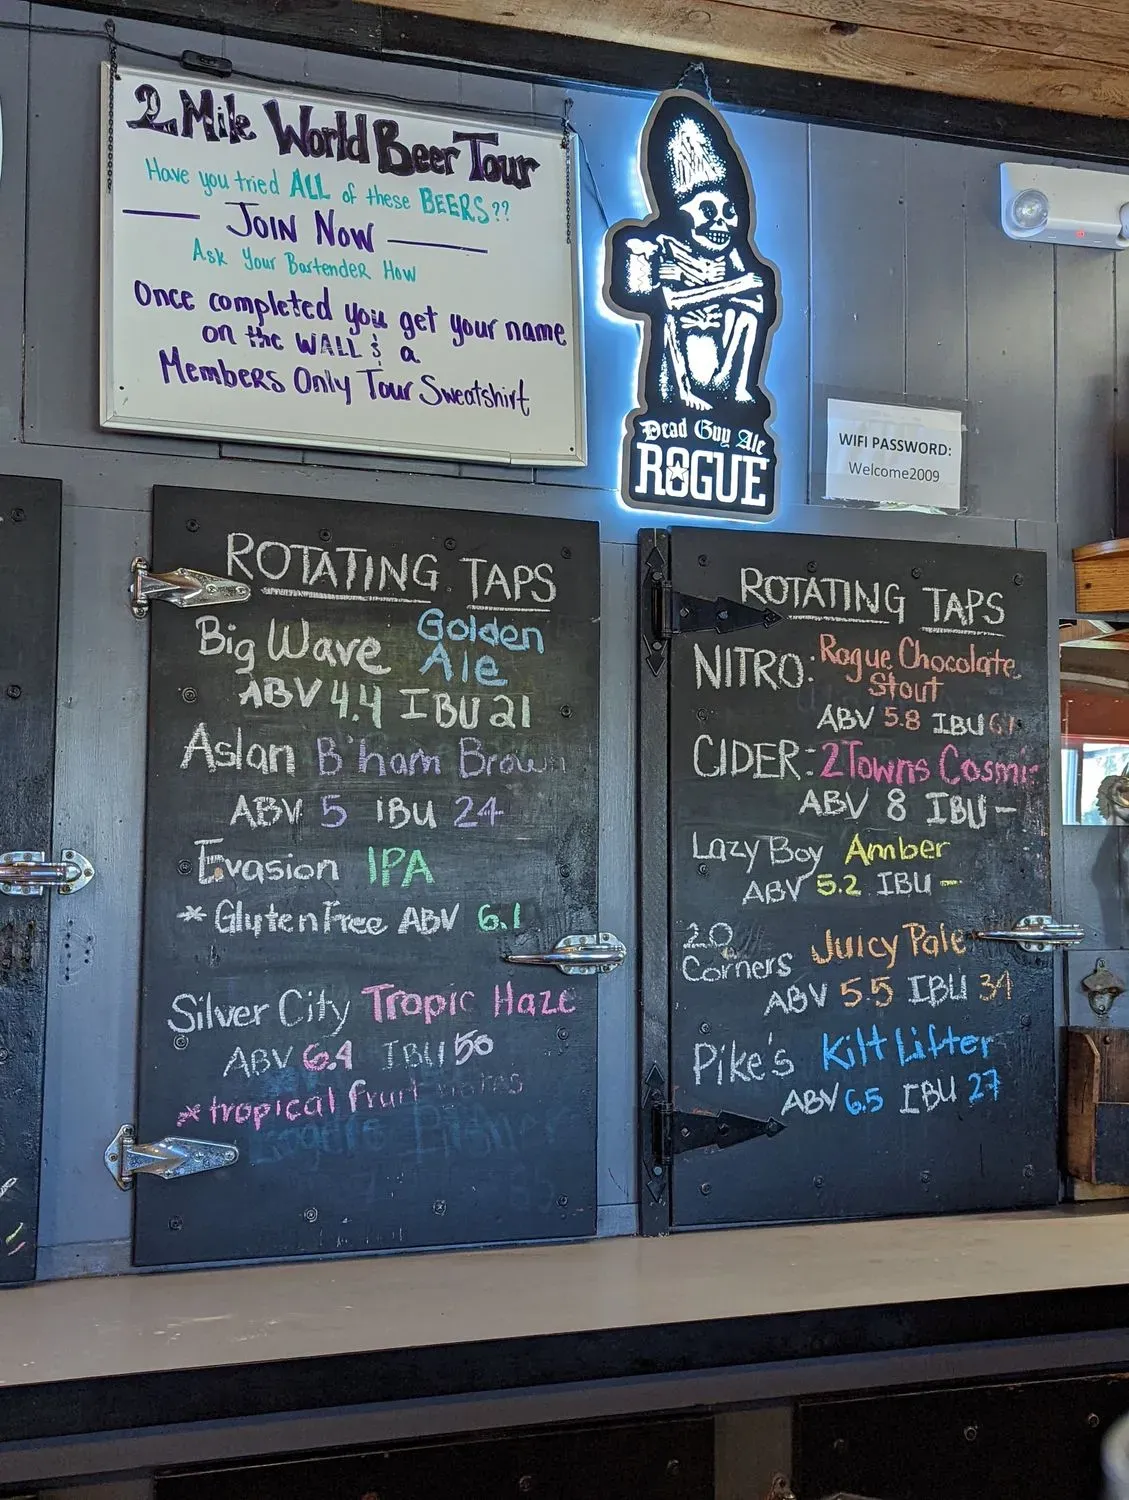 2 Mile World Beer Tour
Have you tried ALL of these BEERS??
JOIN NOW
Ask Your Bartender How
Once completed you get your name
on the WALL & a
Members Only Tour Sweatshirt
Dead Guy Ale
ROGUE
WIFI PASSWORD:
Welcome2009
ROTATING TAPS
Big Wave Golden
Ale
ABV 4.4 IBU 21
Aslan B'ham Brown
ABV 5 IBU 24
Evasion IPA
* Gluten Free ABV 6.1
Silver City Tropic Haze
ABV 6.4 IBU 50
* tropical fruit notes
ROTATING TAPS
NITRO: Rogue Chocolate
Stout
ABV 5.8 IBU
CIDER: 2Towns Cosmic
ABV 8 IBU -
Lazy Boy Amber
ABV 5.2 IBU -
20
Corners Juicy Pale
ABV 5.5 IBU 34
Pike's Kilt Lifter
ABV 6.5 IBU 27